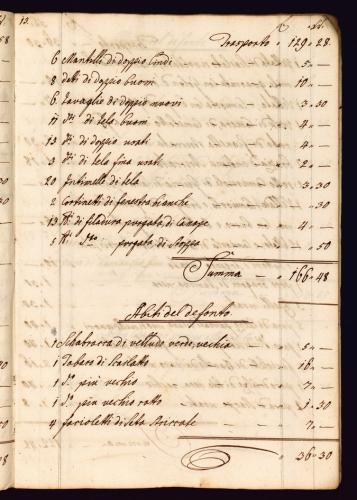 13.
Trasporto " 129 " 28.
6 Mantili di doppio
8 detti di doppio buoni 10 "
6 Tovaglie di doppio nuovi 3 " 30
11 d.i di tela buoni 4 "
13 d.i di doppio usati 4 "
3 d.i di tela fina usati 2 "
20 Intimelle di tela 3 " 30
2 Cortinelli di fenestra bianche 30
13 di filadura purgata, di Canape 4 "
5 purgata di Stoppa 50
Summa " 166 " 48
Abiti del defonto
1 Schabracca di velludo verde, vechia 5 "
1 Tabaro di Scarlatto 16 "
1 d.o più vechio 7 "
1 d.o più vechio rotto 1 " 30
4 Facioletti di Seta 7 "
" 36 " 30